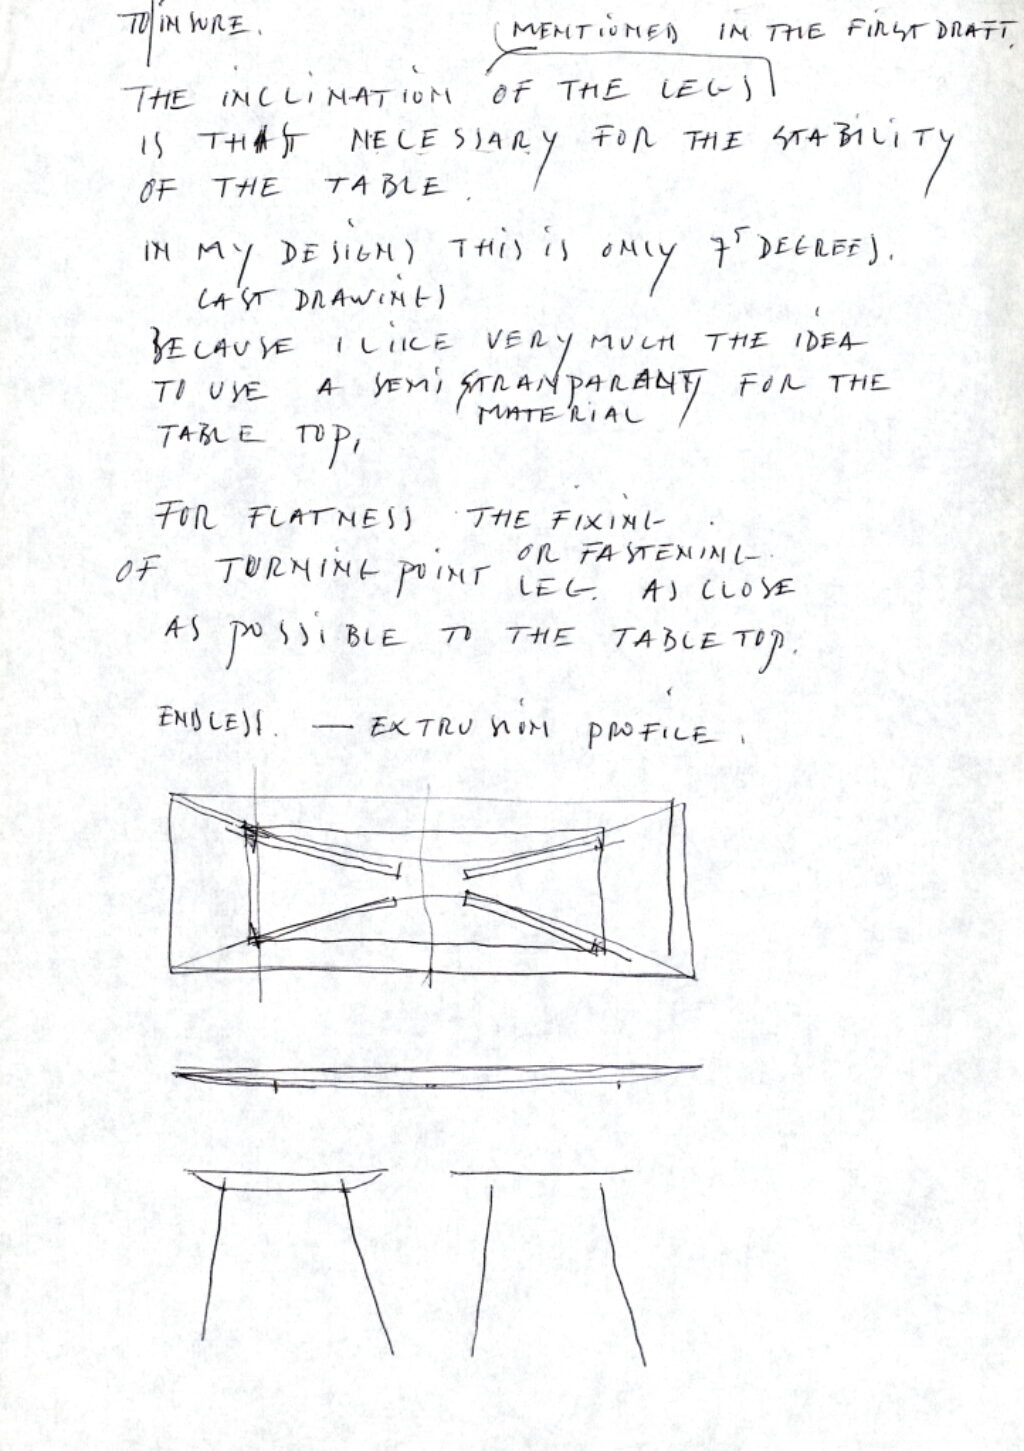 TO INSURE.
MENTIONED IN THE FIRST DRAFT.
THE INCLINATION OF THE LEGS
IS THAT NECESSARY FOR THE STABILITY
OF THE TABLE.
IN MY DESIGNS THIS IS ONLY 7⁵ DEGREES.
LAST DRAWINGS
BECAUSE I LIKE VERY MUCH THE IDEA
TO USE A SEMI STRANPARANT FOR THE
MATERIAL
TABLE TOP,
FOR FLATNESS THE FIXING
OR FASTENING
OF TURNING POINT LEG. AS CLOSE
AS POSSIBLE TO THE TABLE TOP.
ENDLESS. — EXTRUSION PROFILE.